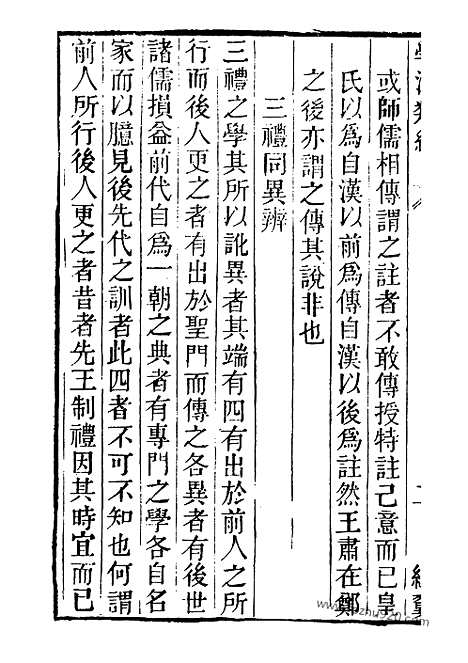 或師儒相傳謂之註者不敢傳授特註己意而已皇
氏以爲自漢以前爲傳自漢以後爲註然王肅在鄭
之後亦謂之傳其說非也
三禮同異辨
三禮之學其所以訛異者其端有四有出於前人之所
行而後人更之者有出於聖門而傳之各異者有後世
諸儒損益前代自爲一朝之典者有專門之學各自名
家而以臆見後先代之訓者此四者不可不知也何謂
前人所行後人更之者昔者先王制禮因其時宜而已